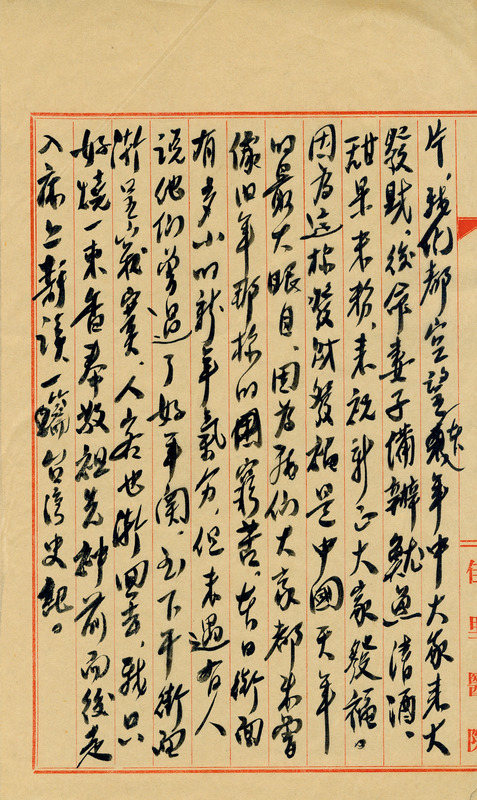 片，我们都空望本年中大家来大
發財，後命妻子備辦魷魚清酒、
甜果来祭，来祝新正大家發福。
因為這樣發財發福是中國天年
的最大眼目，因為我们大家都未曾
像旧年那樣的困窮苦，本日街面
有多小的新年氣分，但未遇有人
説他们曾過了好年関，至下午街面
漸呈寂寞，人客也漸回去，我只
好燒一束香奉敬祖先神前而後走
入床上静讀一篇台湾史記。
佳里醫院